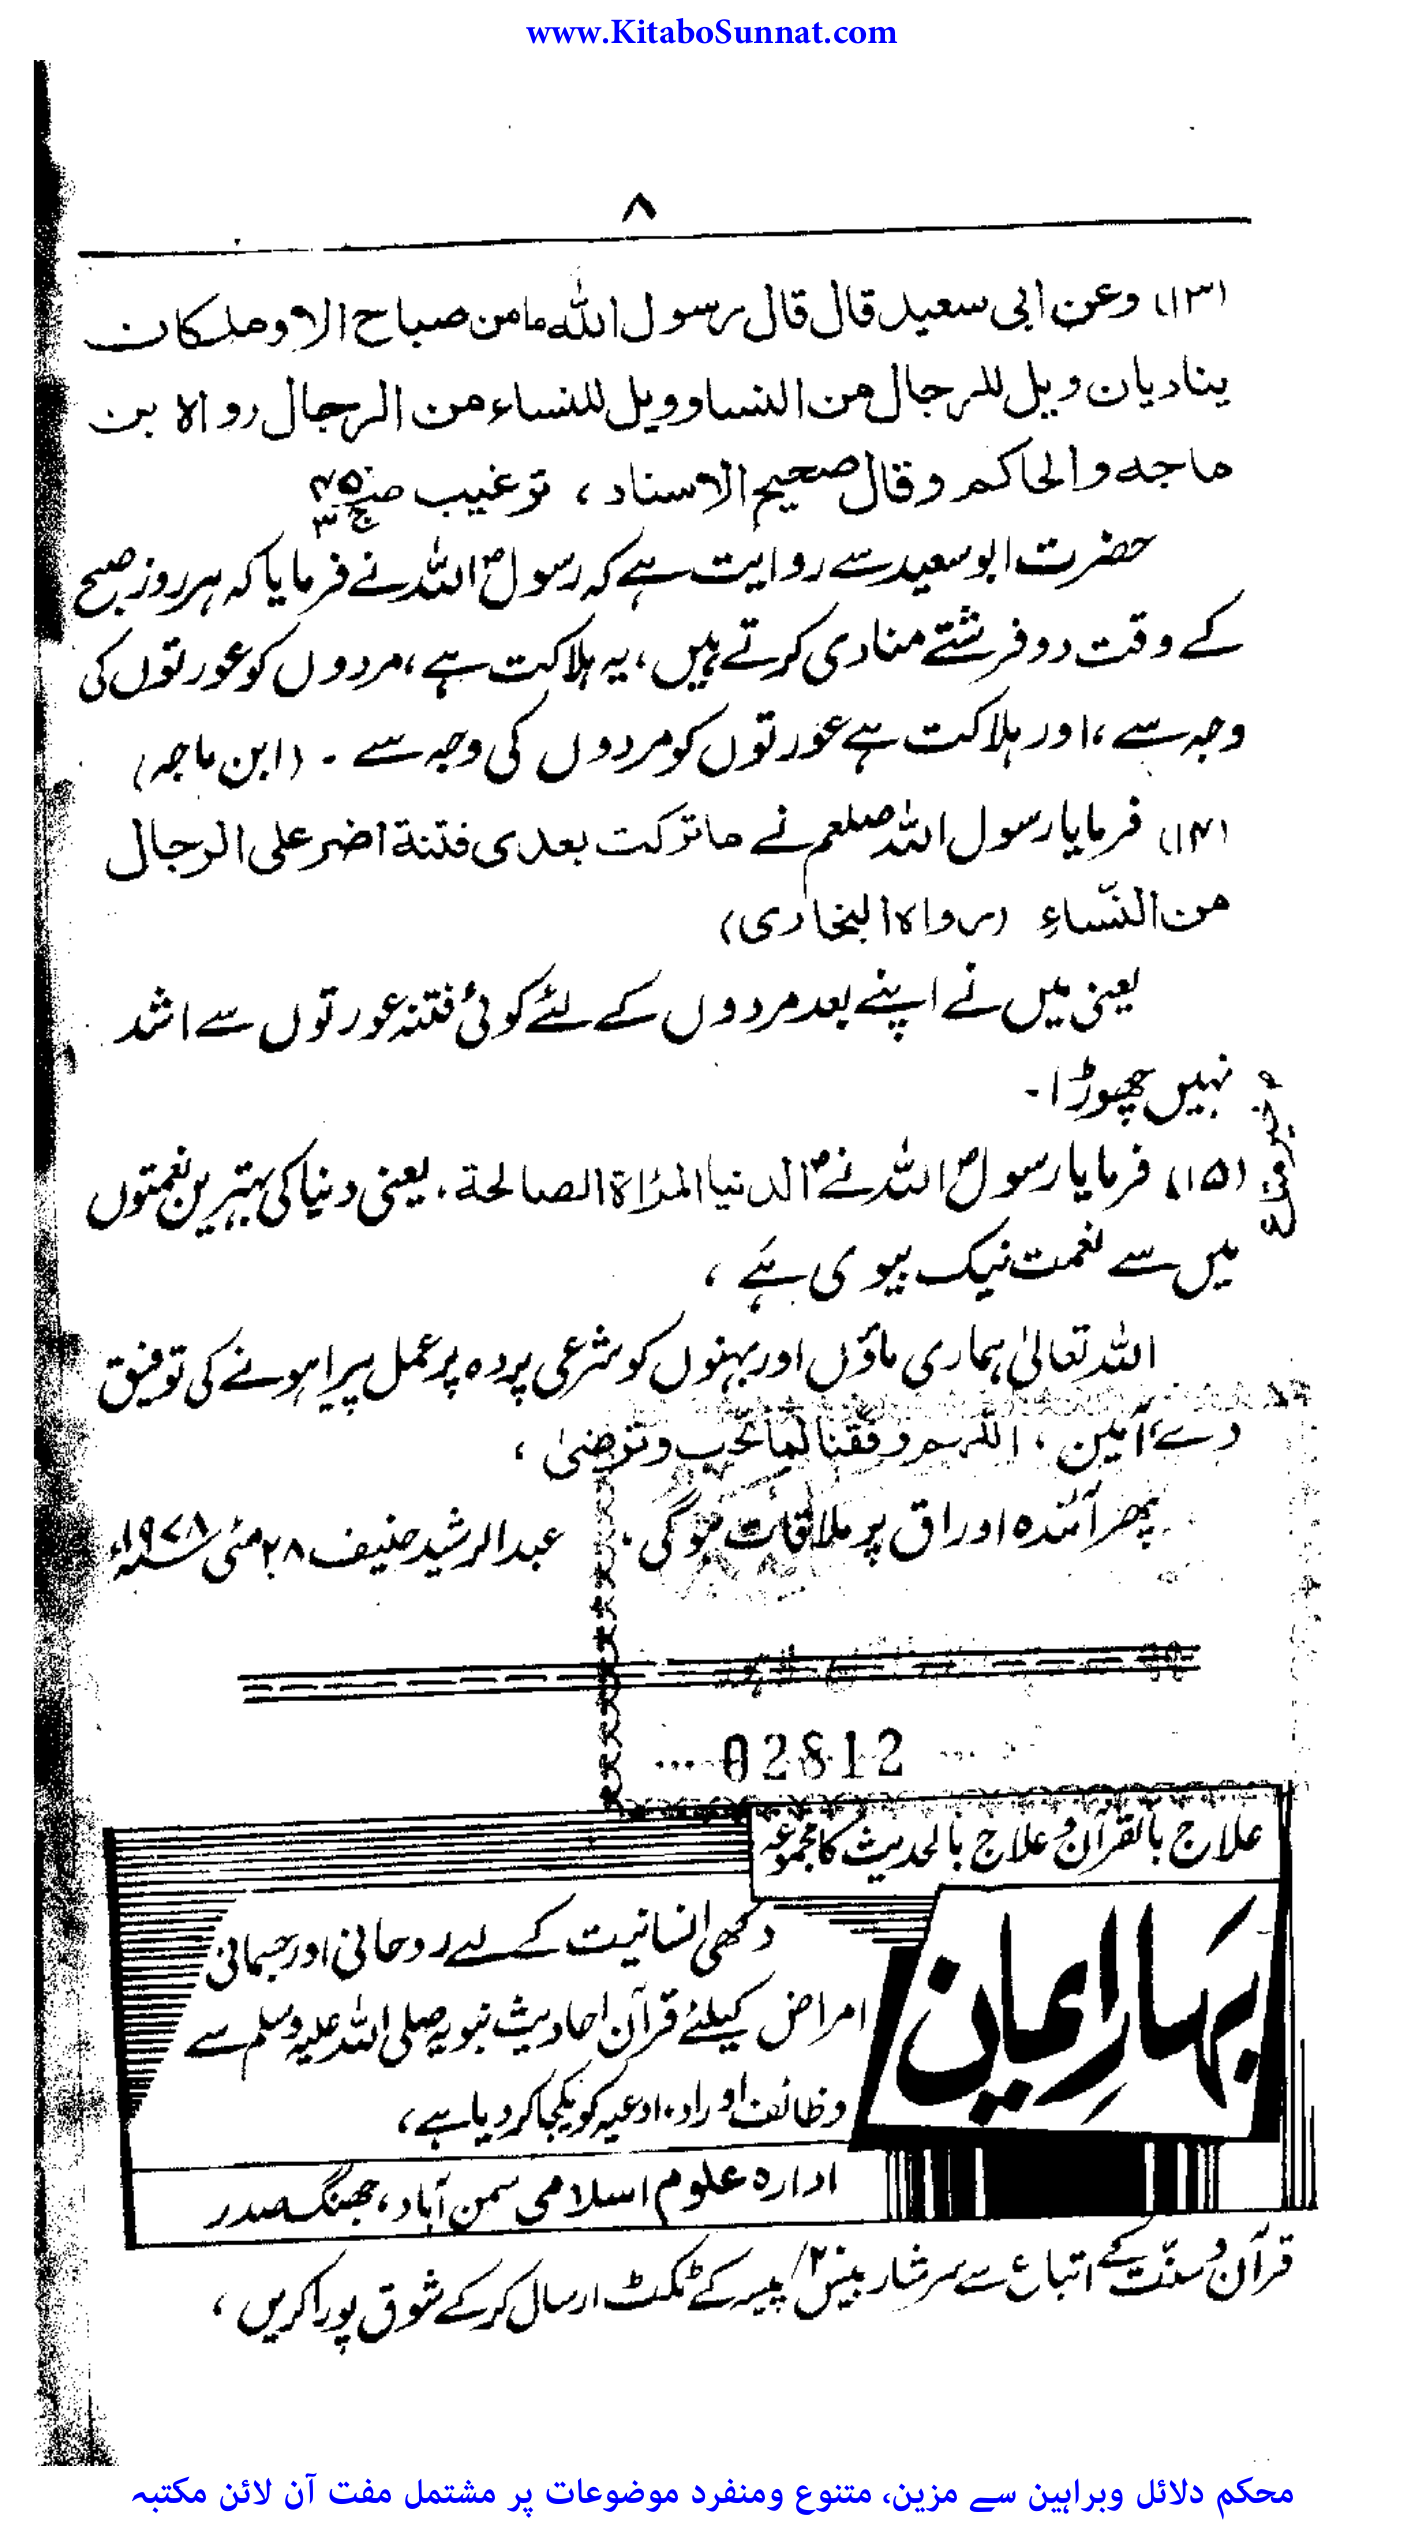 www.KitaboSunnat.com
۸
(۱۳) وعن ابی سعید قال قال رسول الله ما من صباح الا وملکان
ینادیان ویل للرجال من النسا وویل للنساء من الرجال رواہ بن
ماجه والحاکم وقال صحیح الاسناد ، ترغیب
حضرت ابو سعید سے روایت ہے کہ رسولؐ اللہ نے فرمایا کہ ہر روز صبح
کے وقت دو فرشتے منادی کرتے ہیں ، یہ ہلاکت ہے ، مردوں کو عورتوں کی
وجہ سے ، اور ہلاکت ہے عورتوں کو مردوں کی وجہ سے ۔ (ابن ماجہ)
(۱۴) فرمایا رسول اللہ صلعم نے ما ترکت بعدی فتنة اضر علی الرجال
من النّساءِ (رواہ البخاری)
یعنی میں نے اپنے بعد مردوں کے لئے کوئی فتنہ عورتوں سے اشد
نہیں چھوڑا ۔
خیر متاع
(۱۵) فرمایا رسولؐ اللہ نے الدنیا المرأة الصالحة ۔ یعنی دنیا کی بہترین نعمتوں
میں سے نعمت نیک بیوی ہے ،
اللہ تعالیٰ ہماری ماؤں اور بہنوں کو شرعی پردہ پر عمل پیرا ہونے کی توفیق
دے آمین ، اللہم وفقنا لما تحب وترضیٰ ،
پھر آئندہ اوراق پر ملاقات ہوگی ۔ عبدالرشید حنیف ۲۸ مئی ۱۹۷۸ء
02812
علاج بالقرآن و علاج بالحدیث کا مجموعہ
بہارِ ایمان
دکھی انسانیت کے لیے روحانی اور جسمانی
امراض کیلئے قرآن احادیث نبویہ صلی اللہ علیہ وسلم سے
وظائف اوراد ۔ ادعیہ کو یکجا کردیا ہے ،
ادارہ علوم اسلامی سمن آباد ، جھنگ صدر
قرآن و سنّت کے اتباع سے سرشار بیس /۲ پیسہ کے ٹکٹ ارسال کر کے شوق پورا کریں ،
محکم دلائل وبراہین سے مزین، متنوع ومنفرد موضوعات پر مشتمل مفت آن لائن مکتبہ